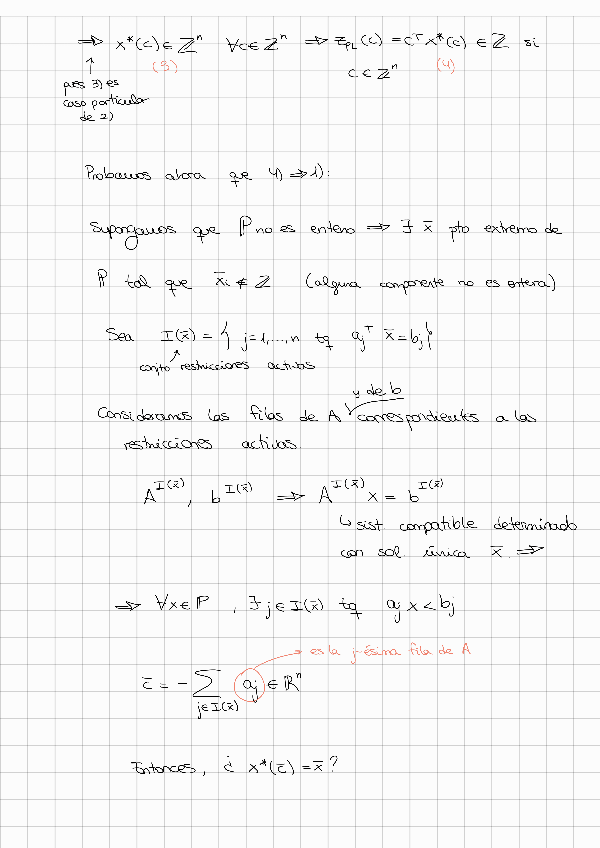 ⟹ x*(c) ∈ ℤⁿ ∀c ∈ ℤⁿ ⟹ z_PL(c) = cᵀx*(c) ∈ ℤ si
(3) (4)
c ∈ ℤⁿ
pues 3) es
caso particular
de 2)
Probamos ahora que 4) ⟹ 1):
Supongamos que ℙ no es entero ⟹ ∃ x̄ pto extremo de
ℙ tal que x̄ᵢ ∉ ℤ (alguna componente no es entera)
Sea I(x̄) = { j=1,...,n tq aⱼᵀ x̄ = bⱼ }
cnjto restricciones activas
y de b
Consideramos las filas de A correspondientes a las
restricciones activas
A^I(x̄), b^I(x̄) ⟹ A^I(x̄) x = b^I(x̄)
↳ sist. compatible determinado
con sol única x̄ ⟹
⟹ ∀x ∈ ℙ, ∃ j ∈ I(x̄) tq aⱼ x < bⱼ
→ es la j-ésima fila de A
c̄ = - ∑ aⱼ ∈ ℝⁿ
j∈I(x̄)
Entonces, ¿ x*(c̄) = x̄ ?